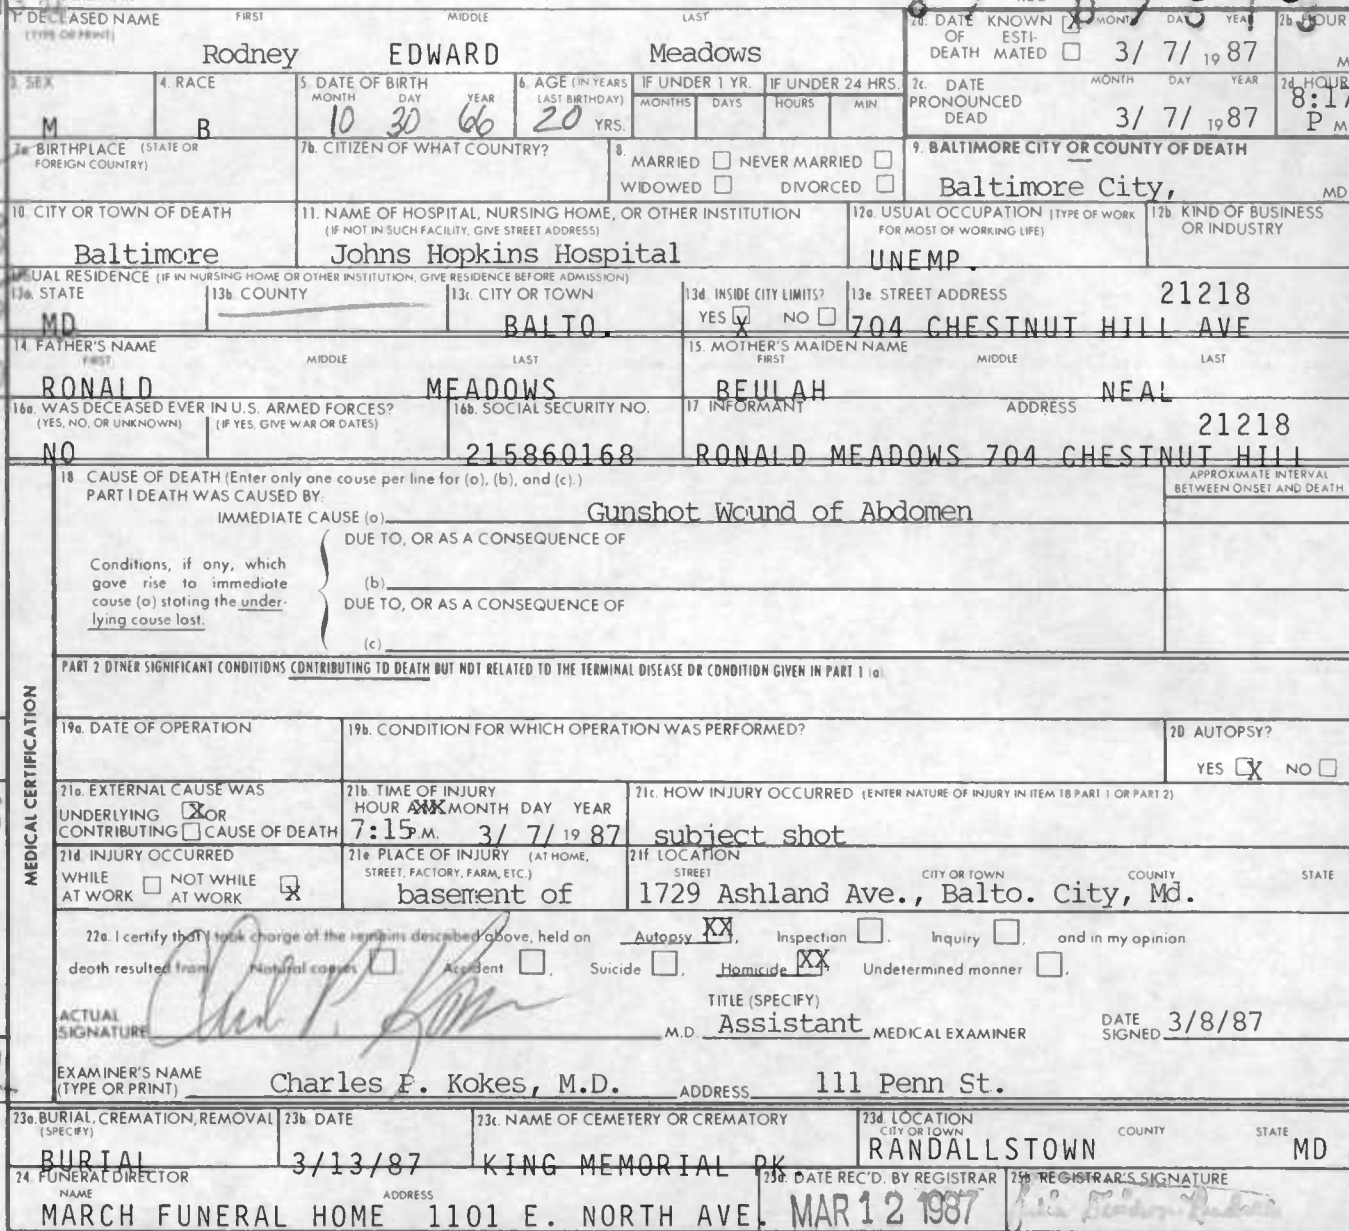 1. DECEASED NAME FIRST MIDDLE LAST
(TYPE OR PRINT)
Rodney EDWARD Meadows
2a. DATE KNOWN X MONTH DAY YEAR 2b HOUR
OF ESTI-
DEATH MATED 3/ 7/ 19 87 M
3. SEX 4. RACE 5. DATE OF BIRTH 6. AGE (IN YEARS IF UNDER 1 YR. IF UNDER 24 HRS.
MONTH DAY YEAR LAST BIRTHDAY) MONTHS DAYS HOURS MIN
M B 10 30 66 20 YRS.
2c. DATE MONTH DAY YEAR 2d. HOUR
PRONOUNCED 8:17
DEAD 3/ 7/ 1987 P M
7a. BIRTHPLACE (STATE OR
FOREIGN COUNTRY)
7b. CITIZEN OF WHAT COUNTRY?
8. MARRIED NEVER MARRIED
WIDOWED DIVORCED
9. BALTIMORE CITY OR COUNTY OF DEATH
Baltimore City, MD
10. CITY OR TOWN OF DEATH
Baltimore
11. NAME OF HOSPITAL, NURSING HOME, OR OTHER INSTITUTION
(IF NOT IN SUCH FACILITY, GIVE STREET ADDRESS)
Johns Hopkins Hospital
12a. USUAL OCCUPATION (TYPE OF WORK
FOR MOST OF WORKING LIFE)
UNEMP.
12b. KIND OF BUSINESS
OR INDUSTRY
USUAL RESIDENCE (IF IN NURSING HOME OR OTHER INSTITUTION, GIVE RESIDENCE BEFORE ADMISSION)
13a. STATE 13b. COUNTY 13c. CITY OR TOWN 13d. INSIDE CITY LIMITS? 13e STREET ADDRESS 21218
MD BALTO. YES X NO 704 CHESTNUT HILL AVE
14. FATHER'S NAME
FIRST MIDDLE LAST
RONALD MEADOWS
15. MOTHER'S MAIDEN NAME
FIRST MIDDLE LAST
BEULAH NEAL
16a. WAS DECEASED EVER IN U.S. ARMED FORCES?
(YES, NO, OR UNKNOWN) (IF YES, GIVE WAR OR DATES)
NO
16b. SOCIAL SECURITY NO.
215860168
17. INFORMANT ADDRESS
21218
RONALD MEADOWS 704 CHESTNUT HILL
18 CAUSE OF DEATH (Enter only one cause per line for (a), (b), and (c).)
APPROXIMATE INTERVAL
BETWEEN ONSET AND DEATH
PART I DEATH WAS CAUSED BY:
IMMEDIATE CAUSE (a) Gunshot Wound of Abdomen
DUE TO, OR AS A CONSEQUENCE OF
Conditions, if any, which
gave rise to immediate
cause (a) stating the under-
lying cause last.
(b)
DUE TO, OR AS A CONSEQUENCE OF
(c)
PART 2 OTHER SIGNIFICANT CONDITIONS CONTRIBUTING TO DEATH BUT NOT RELATED TO THE TERMINAL DISEASE OR CONDITION GIVEN IN PART 1 (a)
MEDICAL CERTIFICATION
19a. DATE OF OPERATION 19b. CONDITION FOR WHICH OPERATION WAS PERFORMED? 20 AUTOPSY?
YES X NO
21a. EXTERNAL CAUSE WAS
UNDERLYING X OR
CONTRIBUTING CAUSE OF DEATH
21b. TIME OF INJURY
HOUR MONTH DAY YEAR
7:15 P.M. 3/ 7/ 19 87
21c. HOW INJURY OCCURRED (ENTER NATURE OF INJURY IN ITEM 18 PART 1 OR PART 2)
subject shot
21d INJURY OCCURRED
WHILE NOT WHILE
AT WORK AT WORK X
21e PLACE OF INJURY (AT HOME,
STREET, FACTORY, FARM, ETC.)
basement of
21f LOCATION
STREET CITY OR TOWN COUNTY STATE
1729 Ashland Ave., Balto. City, Md.
22a. I certify that I took charge of the remains described above, held on Autopsy XX, Inspection , Inquiry , and in my opinion
death resulted from Natural causes Accident , Suicide , Homicide XX, Undetermined manner .
TITLE (SPECIFY)
ACTUAL
SIGNATURE M.D. Assistant MEDICAL EXAMINER DATE
SIGNED 3/8/87
EXAMINER'S NAME
(TYPE OR PRINT) Charles P. Kokes, M.D. ADDRESS 111 Penn St.
23a. BURIAL, CREMATION, REMOVAL 23b. DATE 23c. NAME OF CEMETERY OR CREMATORY 23d. LOCATION
(SPECIFY) CITY OR TOWN COUNTY STATE
BURIAL 3/13/87 KING MEMORIAL PK RANDALLSTOWN MD
24 FUNERAL DIRECTOR
NAME ADDRESS
MARCH FUNERAL HOME 1101 E. NORTH AVE.
25a. DATE REC'D. BY REGISTRAR
MAR 12 1987
25b. REGISTRAR'S SIGNATURE